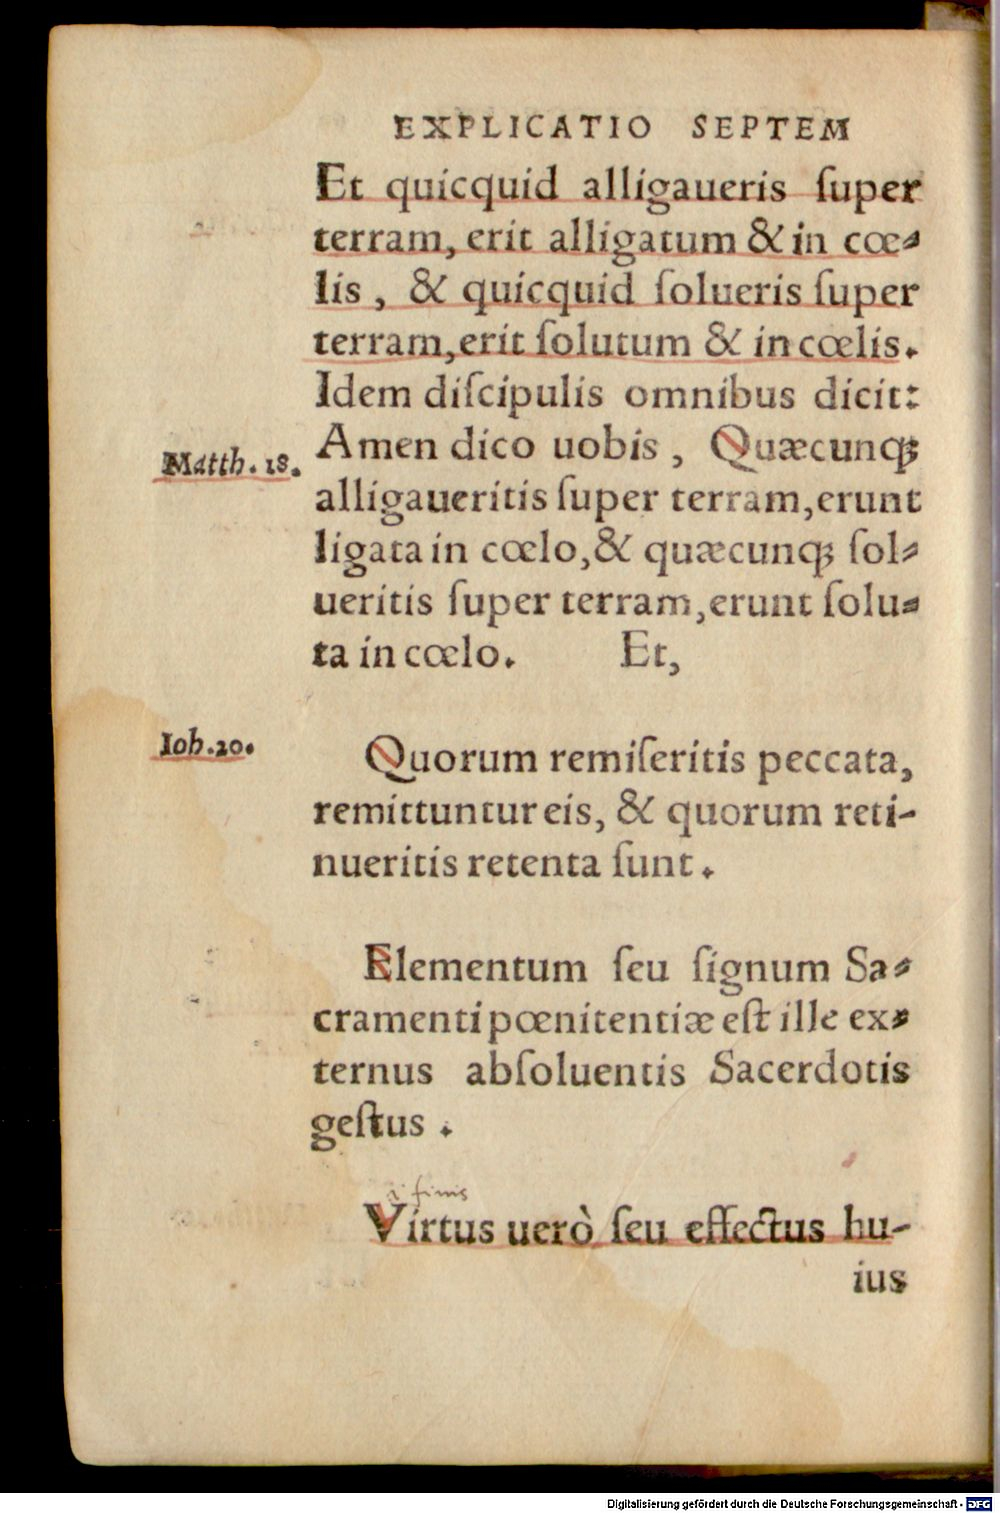 EXPLICATIO SEPTEM
Et quicquid alligaueris ſuper
terram, erit alligatum & in cœ-
lis, & quicquid ſolueris ſuper
terram, erit ſolutum & in cœlis.
Idem diſcipulis omnibus dicit:
Matth. 18.
Amen dico uobis, Quæcunqꝫ
alligaueritis ſuper terram, erunt
ligata in cœlo, & quæcunqꝫ ſol-
ueritis ſuper terram, erunt ſolu-
ta in cœlo. Et,
Ioh. 20.
Quorum remiſeritis peccata,
remittuntur eis, & quorum reti-
nueritis retenta ſunt.
Elementum ſeu ſignum Sa-
cramenti pœnitentiæ eſt ille ex-
ternus abſoluentis Sacerdotis
geſtus.
finis
Virtus uerò ſeu effectus hu-
ius
Digitalisierung gefördert durch die Deutsche Forschungsgemeinschaft - DFG